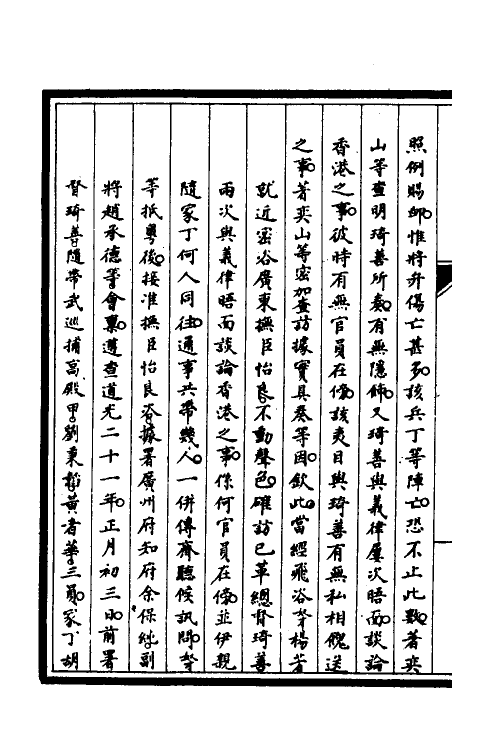 照例賜卹惟將弁傷亡甚多該兵丁等陣亡恐不止此數著奕
山等查明琦善所奏有無隱飾又琦善與義律屢次晤面談論
香港之事彼時有無官員在傍該夷目與琦善有無私相餽送
之事著奕山等密加查訪據實具奏等因欽此當經飛咨芳楊芳
就近密咨廣東撫臣怡良不動聲色確訪已革總督琦善
兩次與義律晤面談論香港之事係何官員在傍並伊親
隨家丁何人同往通事共帶幾人一併傳齊聽候訊問芳
等抵粵後接准撫臣怡良咨據署廣州府知府余保純副
將趙承德等會稟遵查道光二十一年正月初三日前署
督琦善隨帶武巡捕高殿甲劉東黃者華三員家丁胡